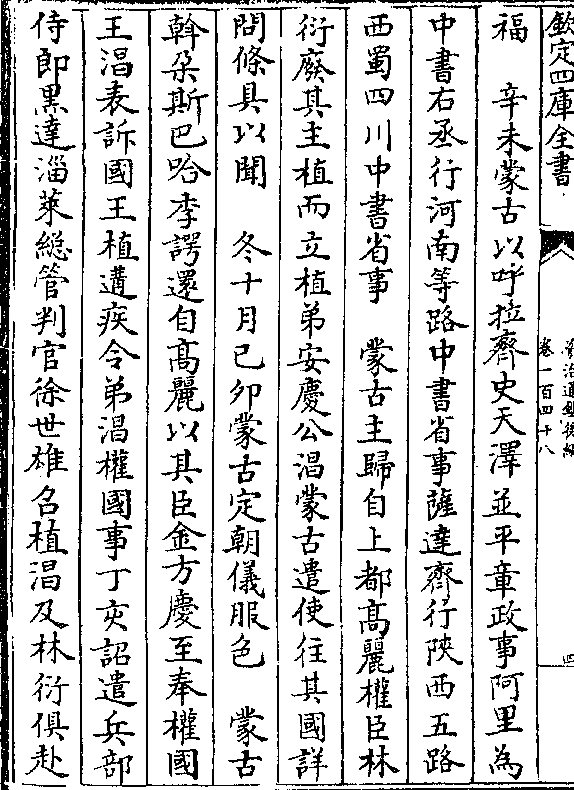 欽定四庫全書
資治通鑑後編
卷一百四十八
四
福　辛未蒙古以呼拉齊史天澤並平章政事阿里為
中書右丞行河南等路中書省事薩達齊行陝西五路
西蜀四川中書省事　蒙古主歸自上都高麗權臣林
衍廢其主植而立植弟安慶公淐蒙古遣使往其國詳
問條具以聞　冬十月己卯蒙古定朝儀服色　蒙古
斡朶斯巴哈李諤還自高麗以其臣金方慶至奉權國
王淐表訴國王植遘疾令弟淐權國事丁亥詔遣兵部
侍郎黒達淄萊総管判官徐世雄召植淐及林衍俱赴